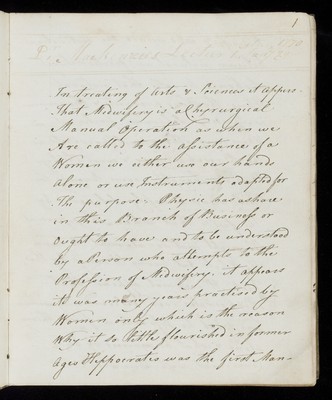 1
In treating of Arts & Sciences it appears
That Midwifery is a Chyrurgical
Manual Operation as when we
Are called to the assistance of a
Women we either use our hands
Alone or use Instruments adapted for
The purpose. Physic has a share
in this Branch of Business or
Ought to have and to be understood
by a Person who attempts to the
Profession of Midwifery. it appears
its was many years practised by
Women only which is the reason
Why it so little flourished in former
Ages Hippocrates was the first Man-